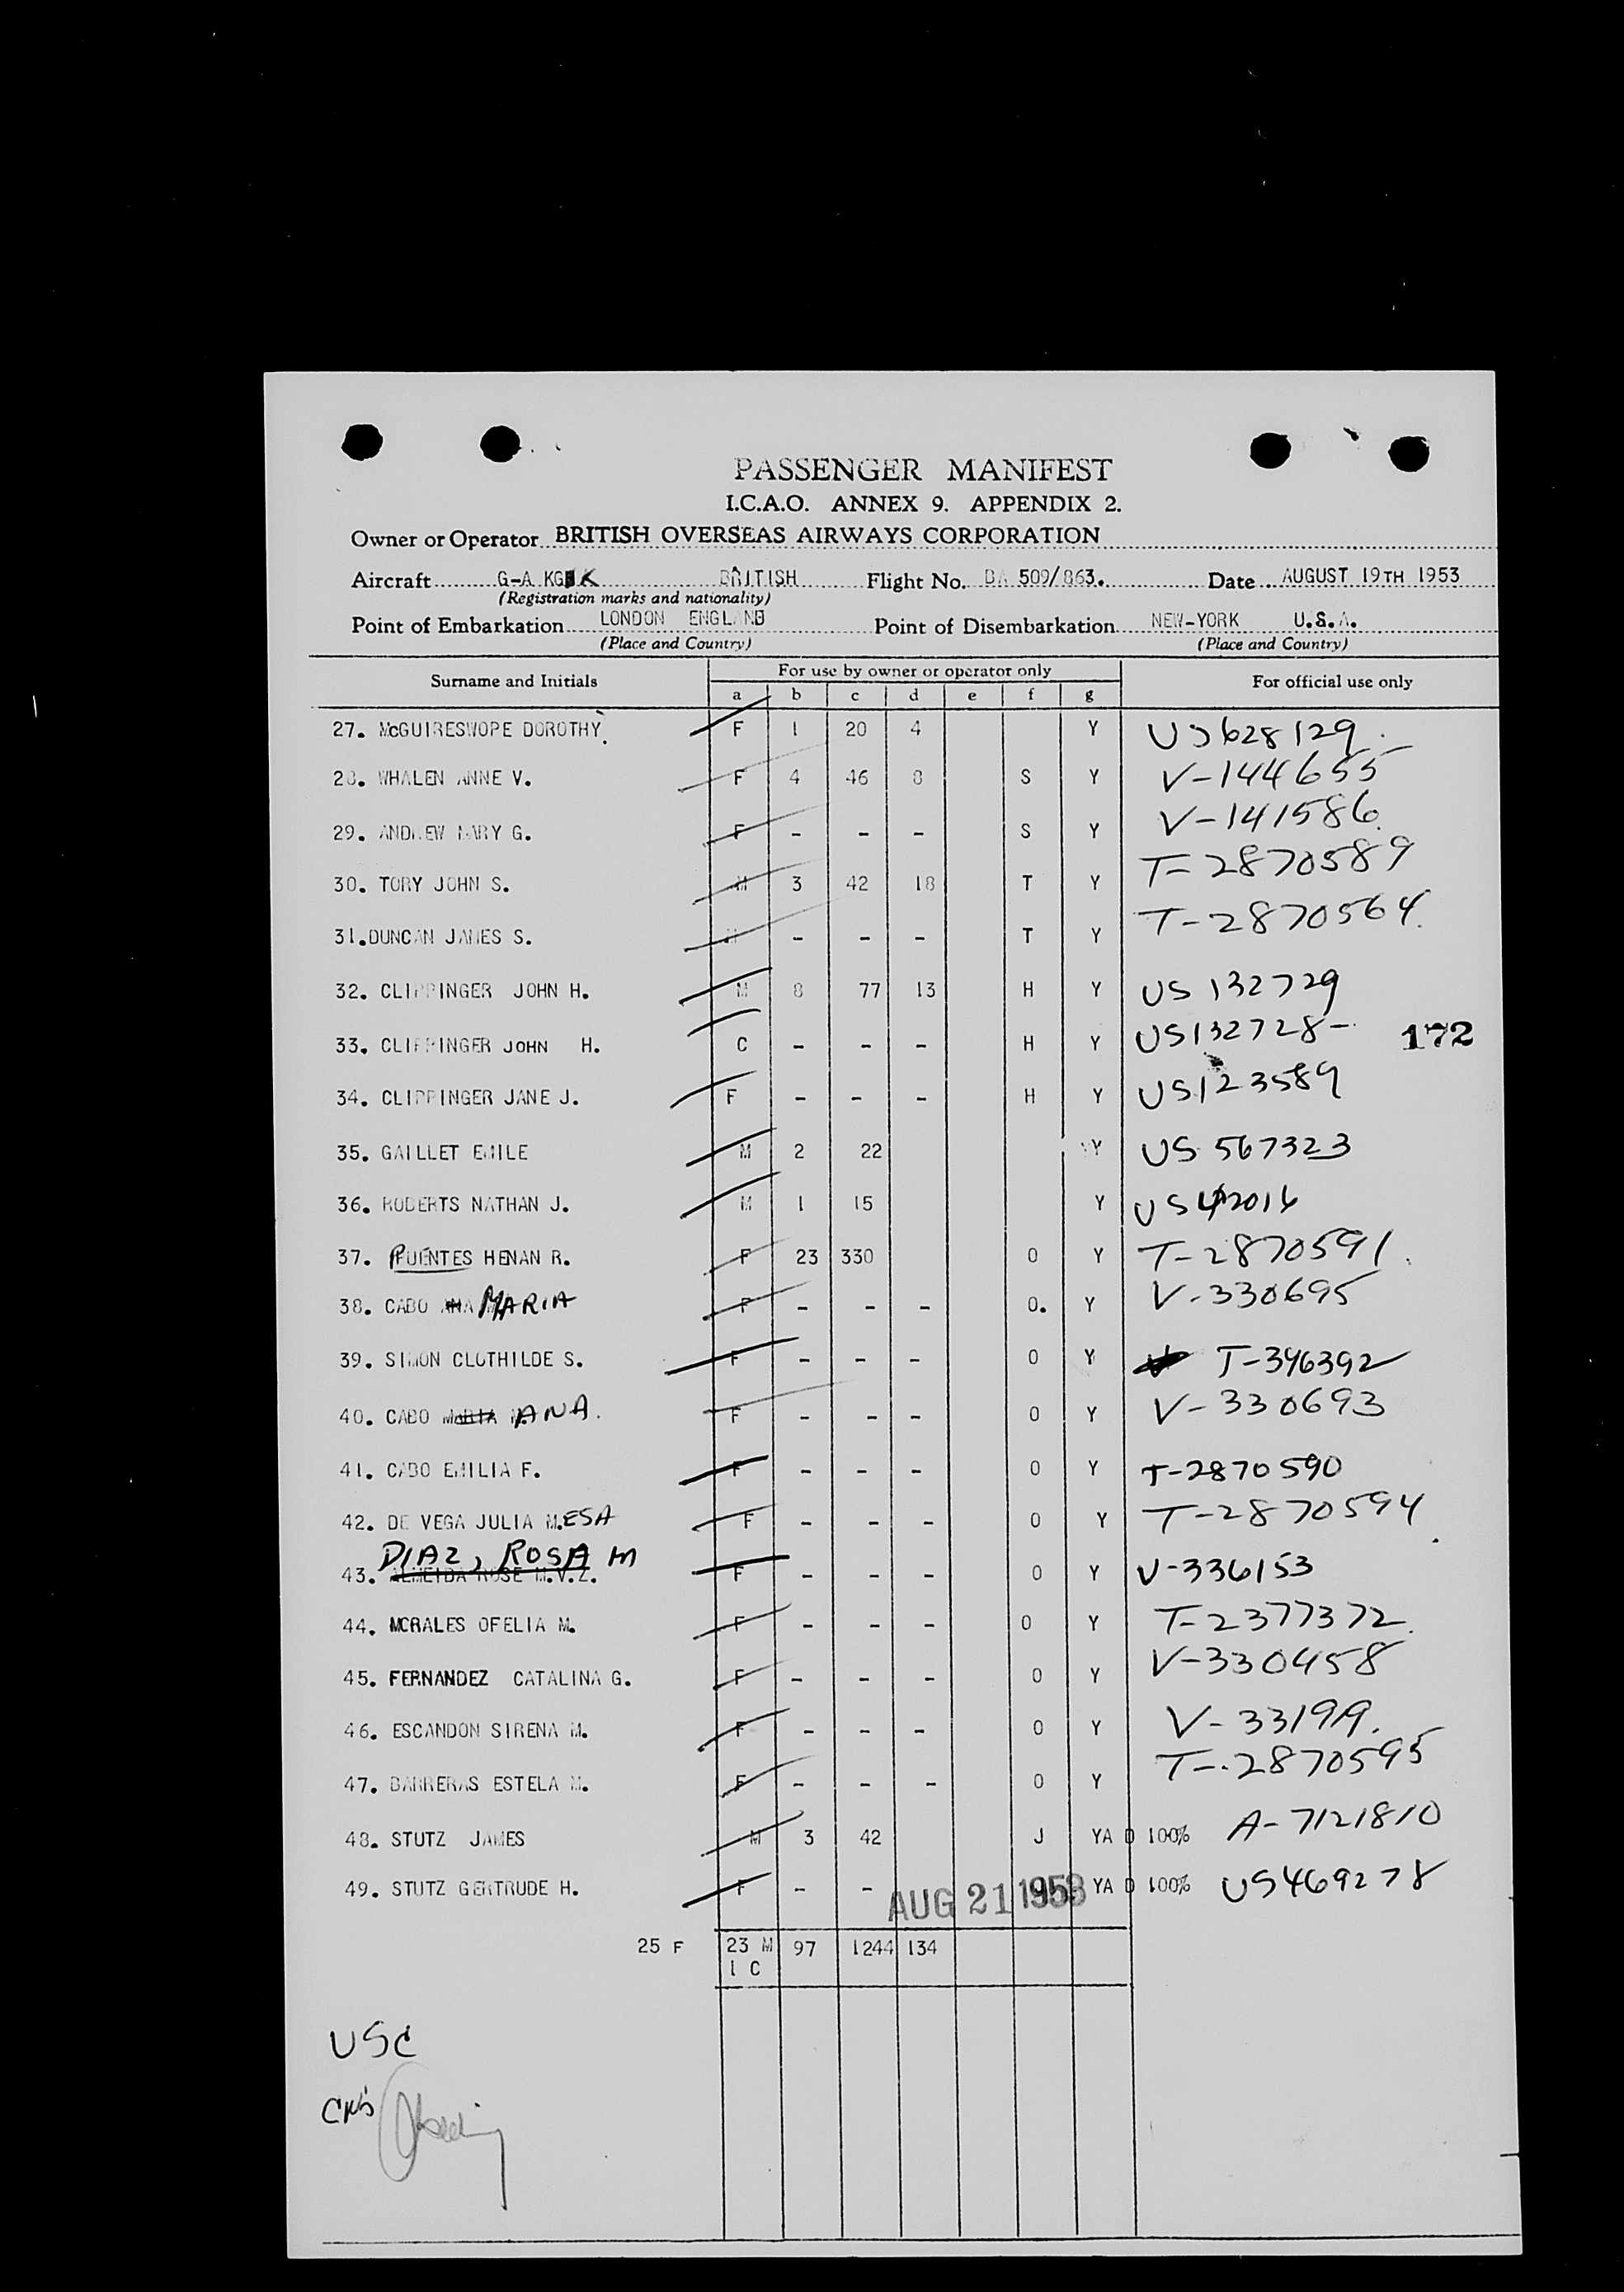 PASSENGER MANIFEST
I.C.A.O. ANNEX 9. APPENDIX 2.
Owner or Operator BRITISH OVERSEAS AIRWAYS CORPORATION
Aircraft G-A KG K BRITISH Flight No. BA 509/863. Date AUGUST 19TH 1953
(Registration marks and nationality)
Point of Embarkation LONDON ENGLAND Point of Disembarkation NEW-YORK U.S.A.
(Place and Country) (Place and Country)
Surname and Initials For use by owner or operator only For official use only
a b c d e f g
27. McGUIRESWOPE DOROTHY F 1 20 4 Y US628129
28. WHALEN ANNE V. F 4 46 8 S Y V-144655
29. ANDREW MARY G. F - - - S Y V-141586
30. TORY JOHN S. M 3 42 18 T Y T-2870589
31. DUNCAN JAMES S. M - - - T Y T-2870564
32. CLIPPINGER JOHN H. M 8 77 13 H Y US 132729
33. CLIPPINGER JOHN H. C - - - H Y US132728- 172
34. CLIPPINGER JANE J. F - - - H Y US123589
35. GAILLET EMILE M 2 22 Y US 567323
36. ROBERTS NATHAN J. M 1 15 Y
37. PUENTES HENAN R. F 23 330 O Y T-2870591
38. CABO ANA MARIA F - - - O. Y V-330695
39. SIMON CLOTHILDE S. F - - - O Y T-346392
40. CABO MARIA ANA. F - - - O Y V-330693
41. CABO EMILIA F. F - - - O Y T-2870590
42. DE VEGA JULIA MESA F - - - O Y T-2870594
DIAZ, ROSA M
43. ALMEIDA ROSE M.V.Z. F - - - O Y V-336153
44. MORALES OFELIA M. F - - - O Y T-2377372
45. FERNANDEZ CATALINA G. F - - - O Y V-330458
46. ESCANDON SIRENA M. F - - - O Y
47. BARRERAS ESTELA M. F - - - O Y T-2870595
48. STUTZ JAMES M 3 42 J YA D 100% A-7121810
49. STUTZ GERTRUDE H. F - - YA D 100% US469278
AUG 21 1953
25 F 23 M 97 1244 134
1 C
USC